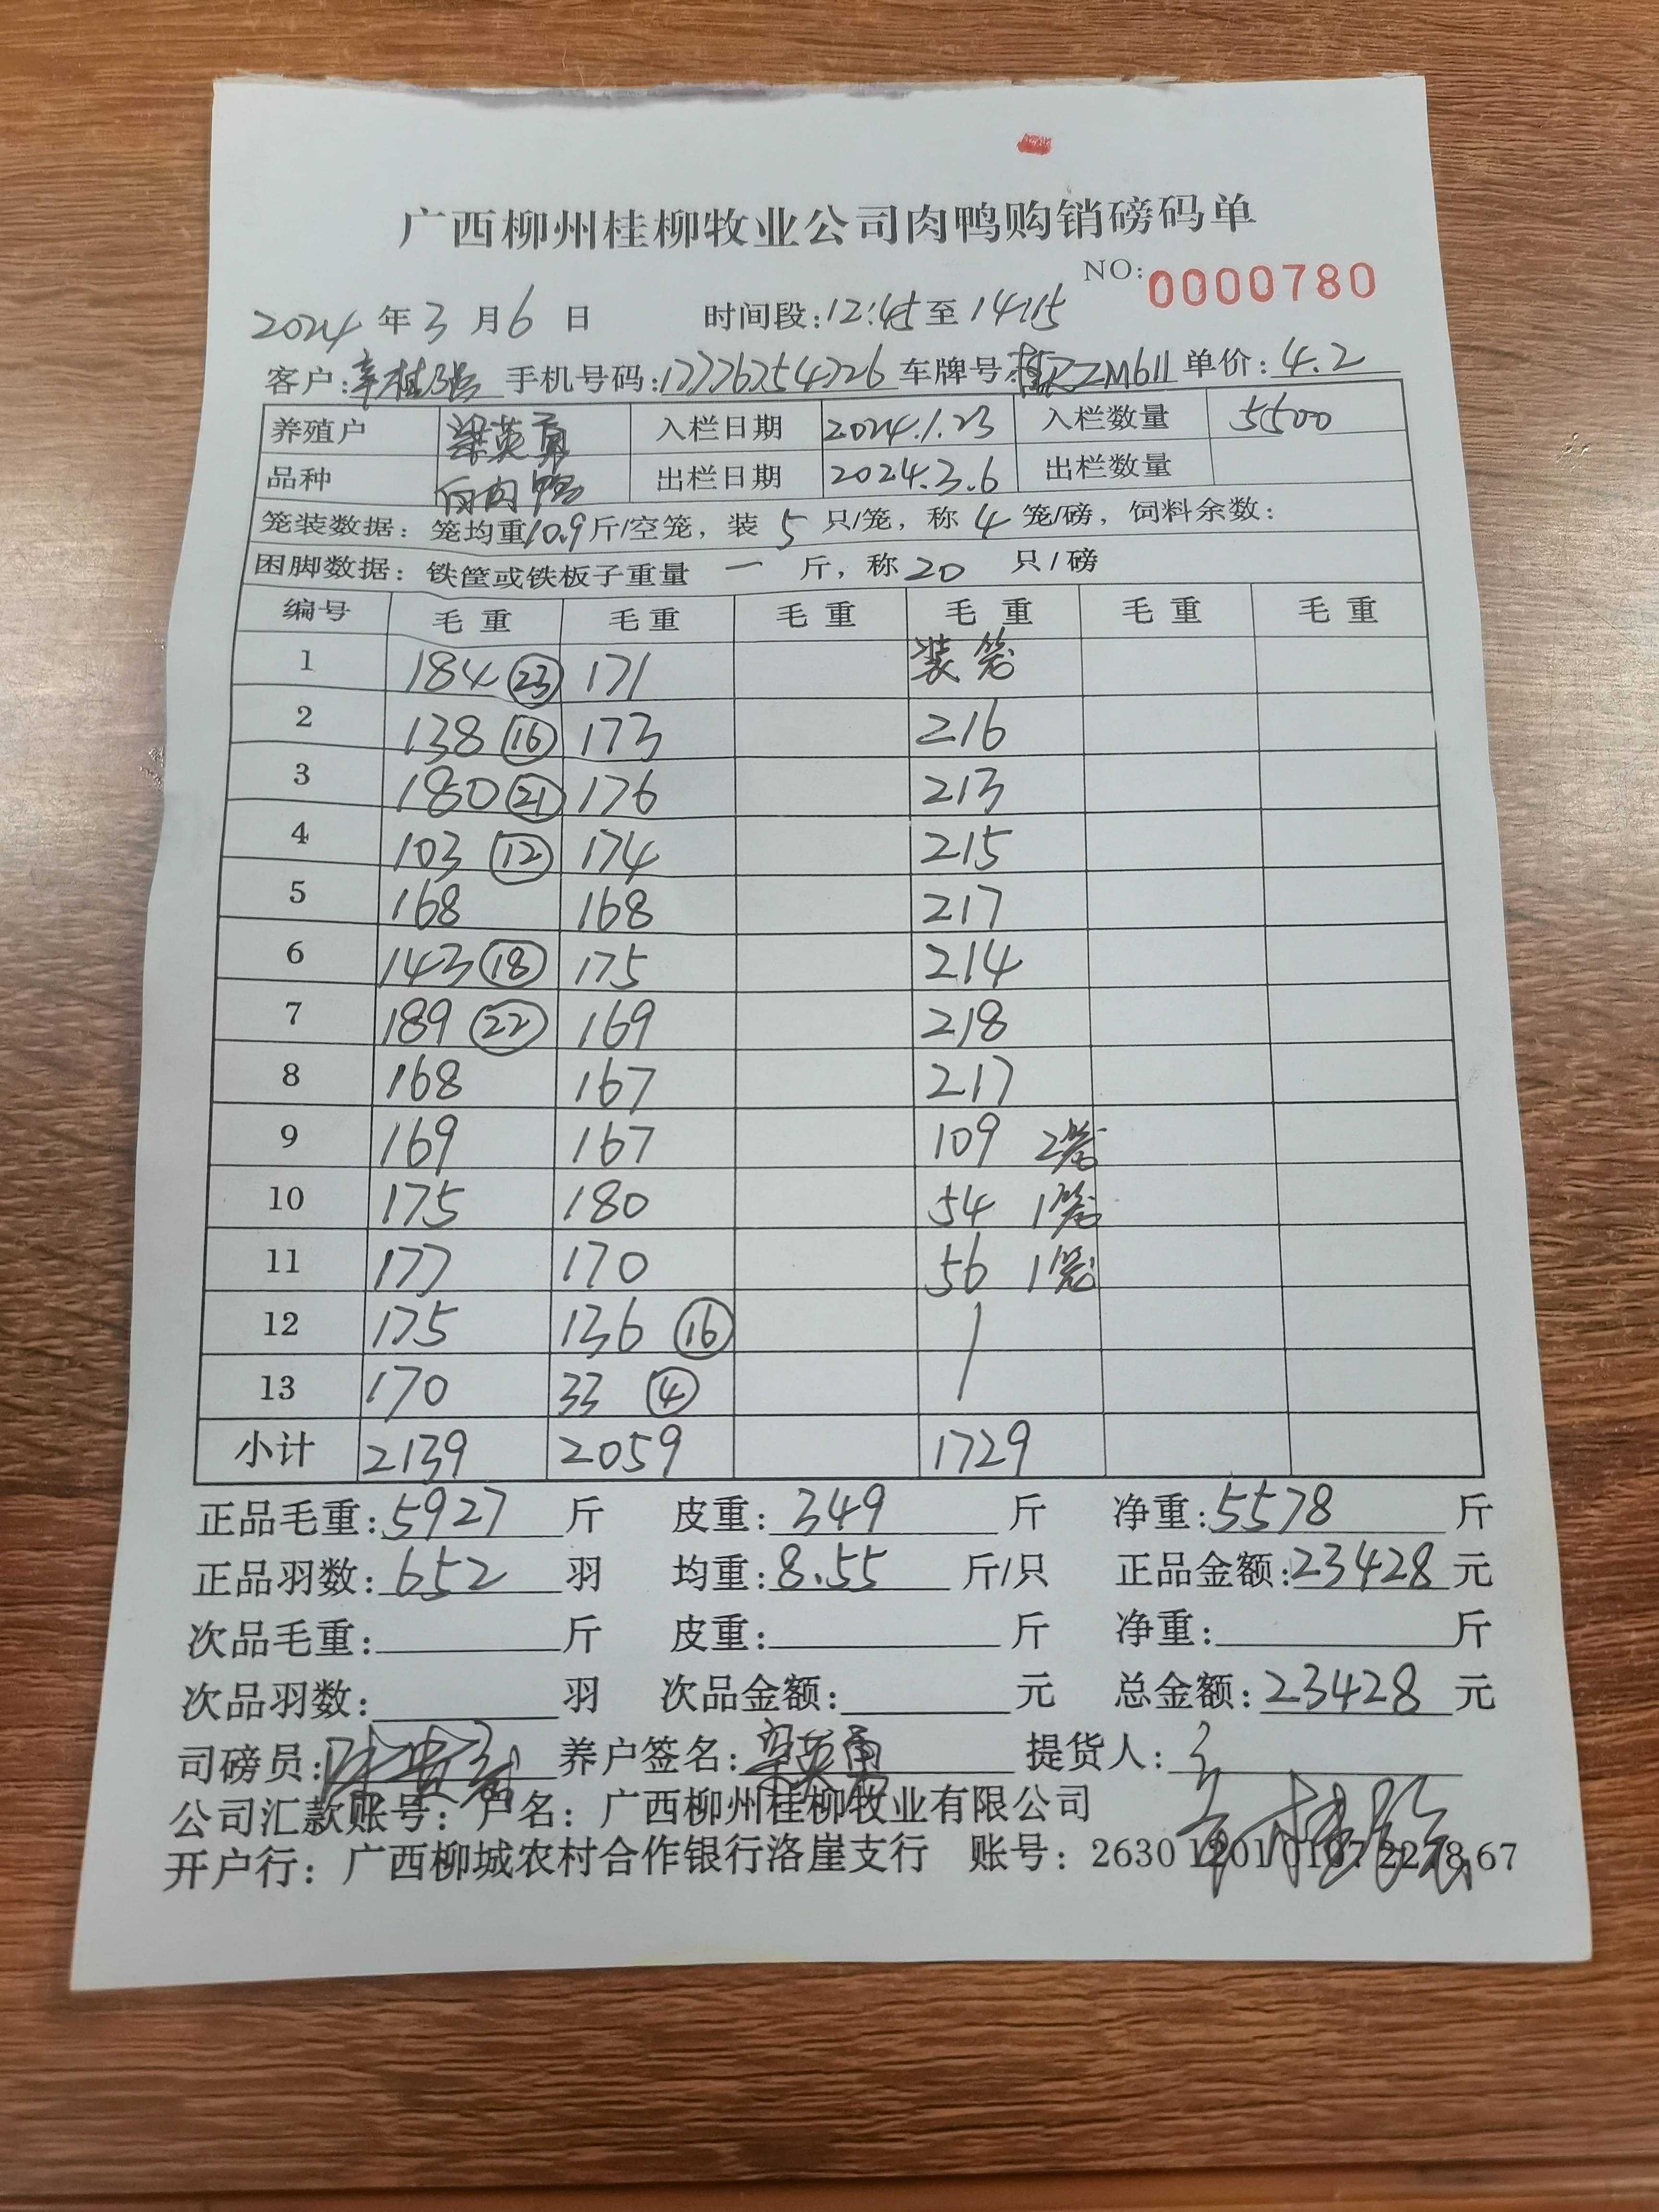 广西柳州桂柳牧业公司肉鸭购销磅码单
NO:0000780
2024年3月6日 时间段:12:45至14:15
客户:辛桂强 手机号码:17776254726 车牌号: ZM611 单价:4.2
养殖户 梁英勇 入栏日期 2024.1.23 入栏数量 5500
品种 白肉鸭 出栏日期 2024.3.6 出栏数量
笼装数据：笼均重10.9斤/空笼，装5只/笼，称4笼/磅，饲料余数：
困脚数据：铁筐或铁板子重量一斤，称20只/磅
编号 毛重 毛重 毛重 毛重 毛重 毛重
1 184 23 171 装笼
2 138 16 173 216
3 180 21 176 213
4 103 12 174 215
5 168 168 217
6 143 18 175 214
7 189 22 169 218
8 168 167 217
9 169 167 109 2笼
10 175 180 54 1笼
11 177 170 56 1笼
12 175 136 16
13 170 33 4
小计 2139 2059 1729
正品毛重:5927斤 皮重:349斤 净重:5578斤
正品羽数:652羽 均重:8.55斤/只 正品金额:23428元
次品毛重:斤 皮重:斤 净重:斤
次品羽数:羽 次品金额:元 总金额:23428元
司磅员: 养户签名:梁英勇 提货人:
辛桂强
公司汇款账号：户名：广西柳州桂柳牧业有限公司
开户行：广西柳城农村合作银行洛崖支行 账号：2630